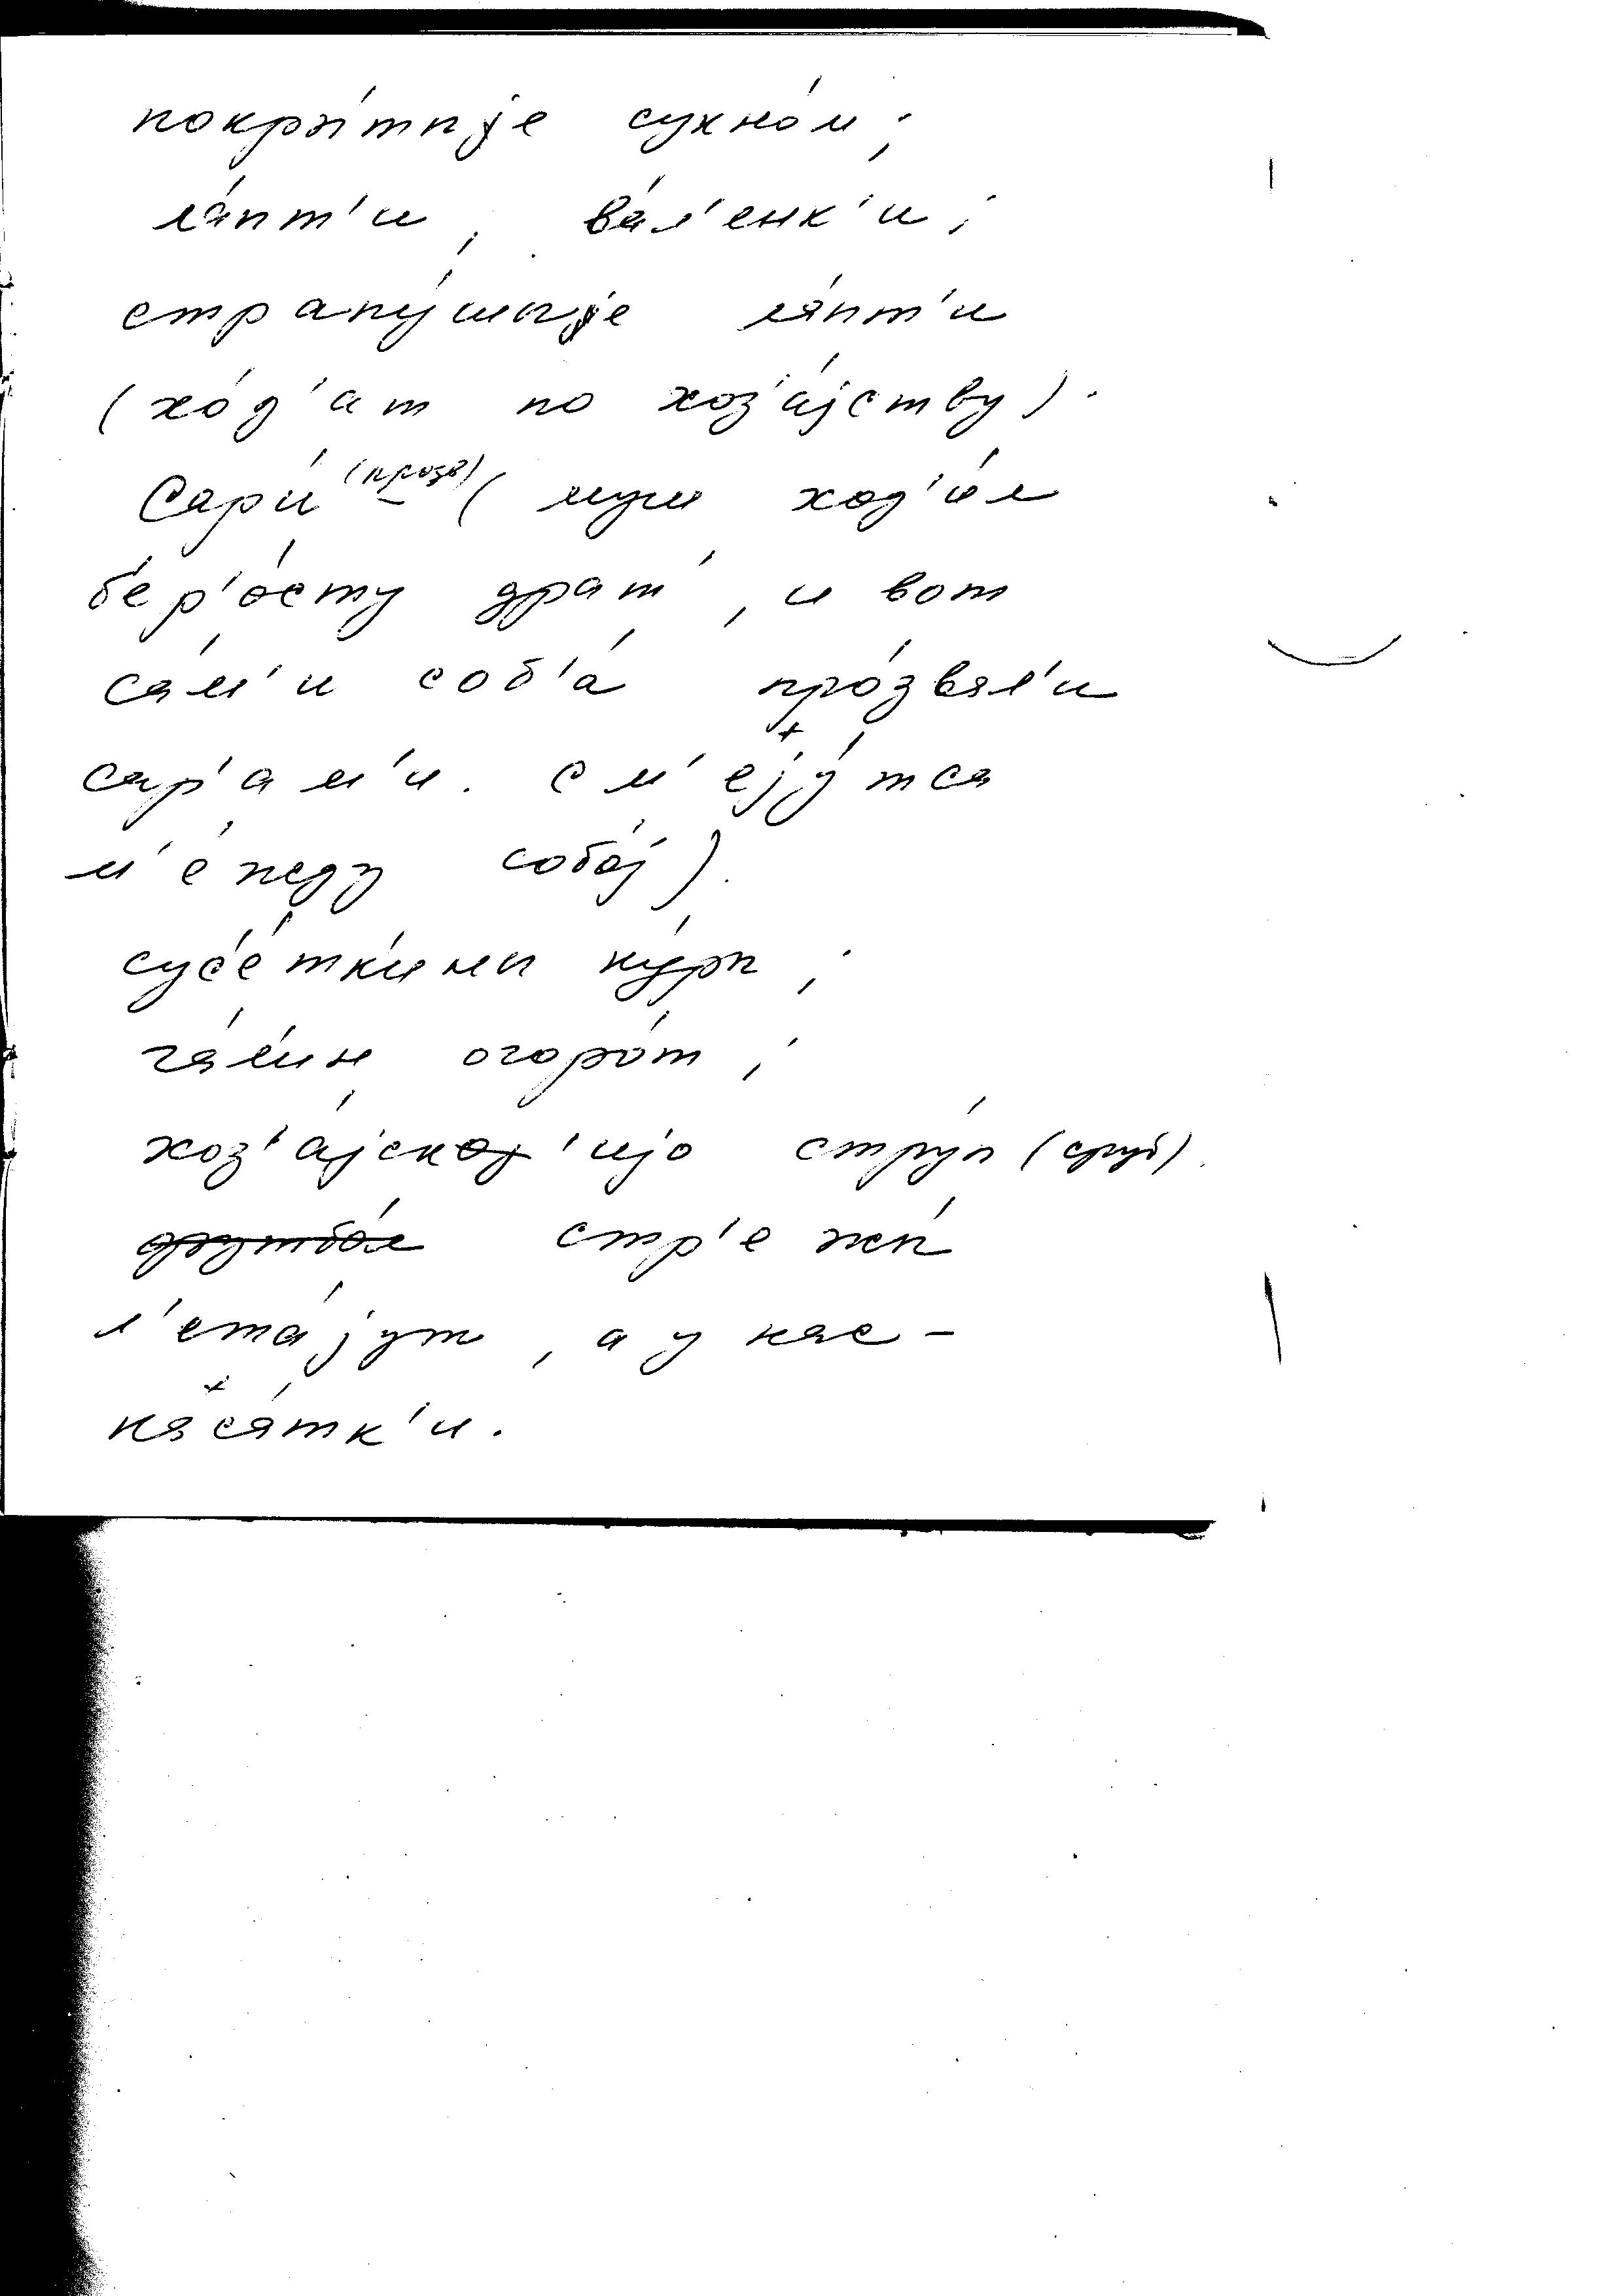 покры́тыjе сухно́м;
ла́пт'и, ва́л'енк'и;
страпу́шыjе ла́пт'и
(хо́д'ат по хоз'а́jству).
Сари́ (прозв) ( муш ход'и́л
б'ер'о́сту драт', и вот
са́м'и соб'а́ про́звал'и
сар'а́м'и. См'еjу́тса
м'е́жду собо́j).
сус'е́ткины ку́ры;
га́л'ин огоро́т;
хоз'а́jск'иjо стру́п (сруб).
стр'ежы́
л'ета́jут, а у нас –
каса́тк'и.